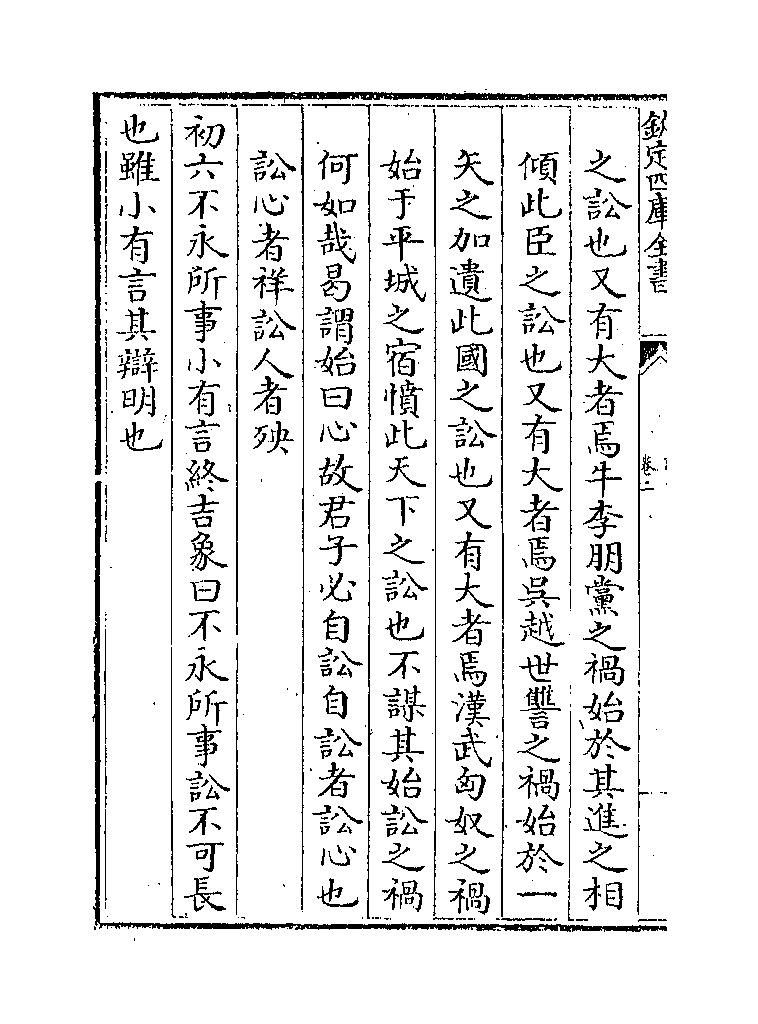 欽定四庫全書
卷二
之訟也又有大者焉牛李朋黨之禍始於其進之相
傾此臣之訟也又有大者焉吳越世讐之禍始於一
矢之加遺此國之訟也又有大者焉漢武匈奴之禍
始于平城之宿憤此天下之訟也不謀其始訟之禍
何如哉曷謂始曰心故君子必自訟自訟者訟心也
訟心者祥訟人者殃
初六不永所事小有言終吉象曰不永所事訟不可長
也雖小有言其辯明也